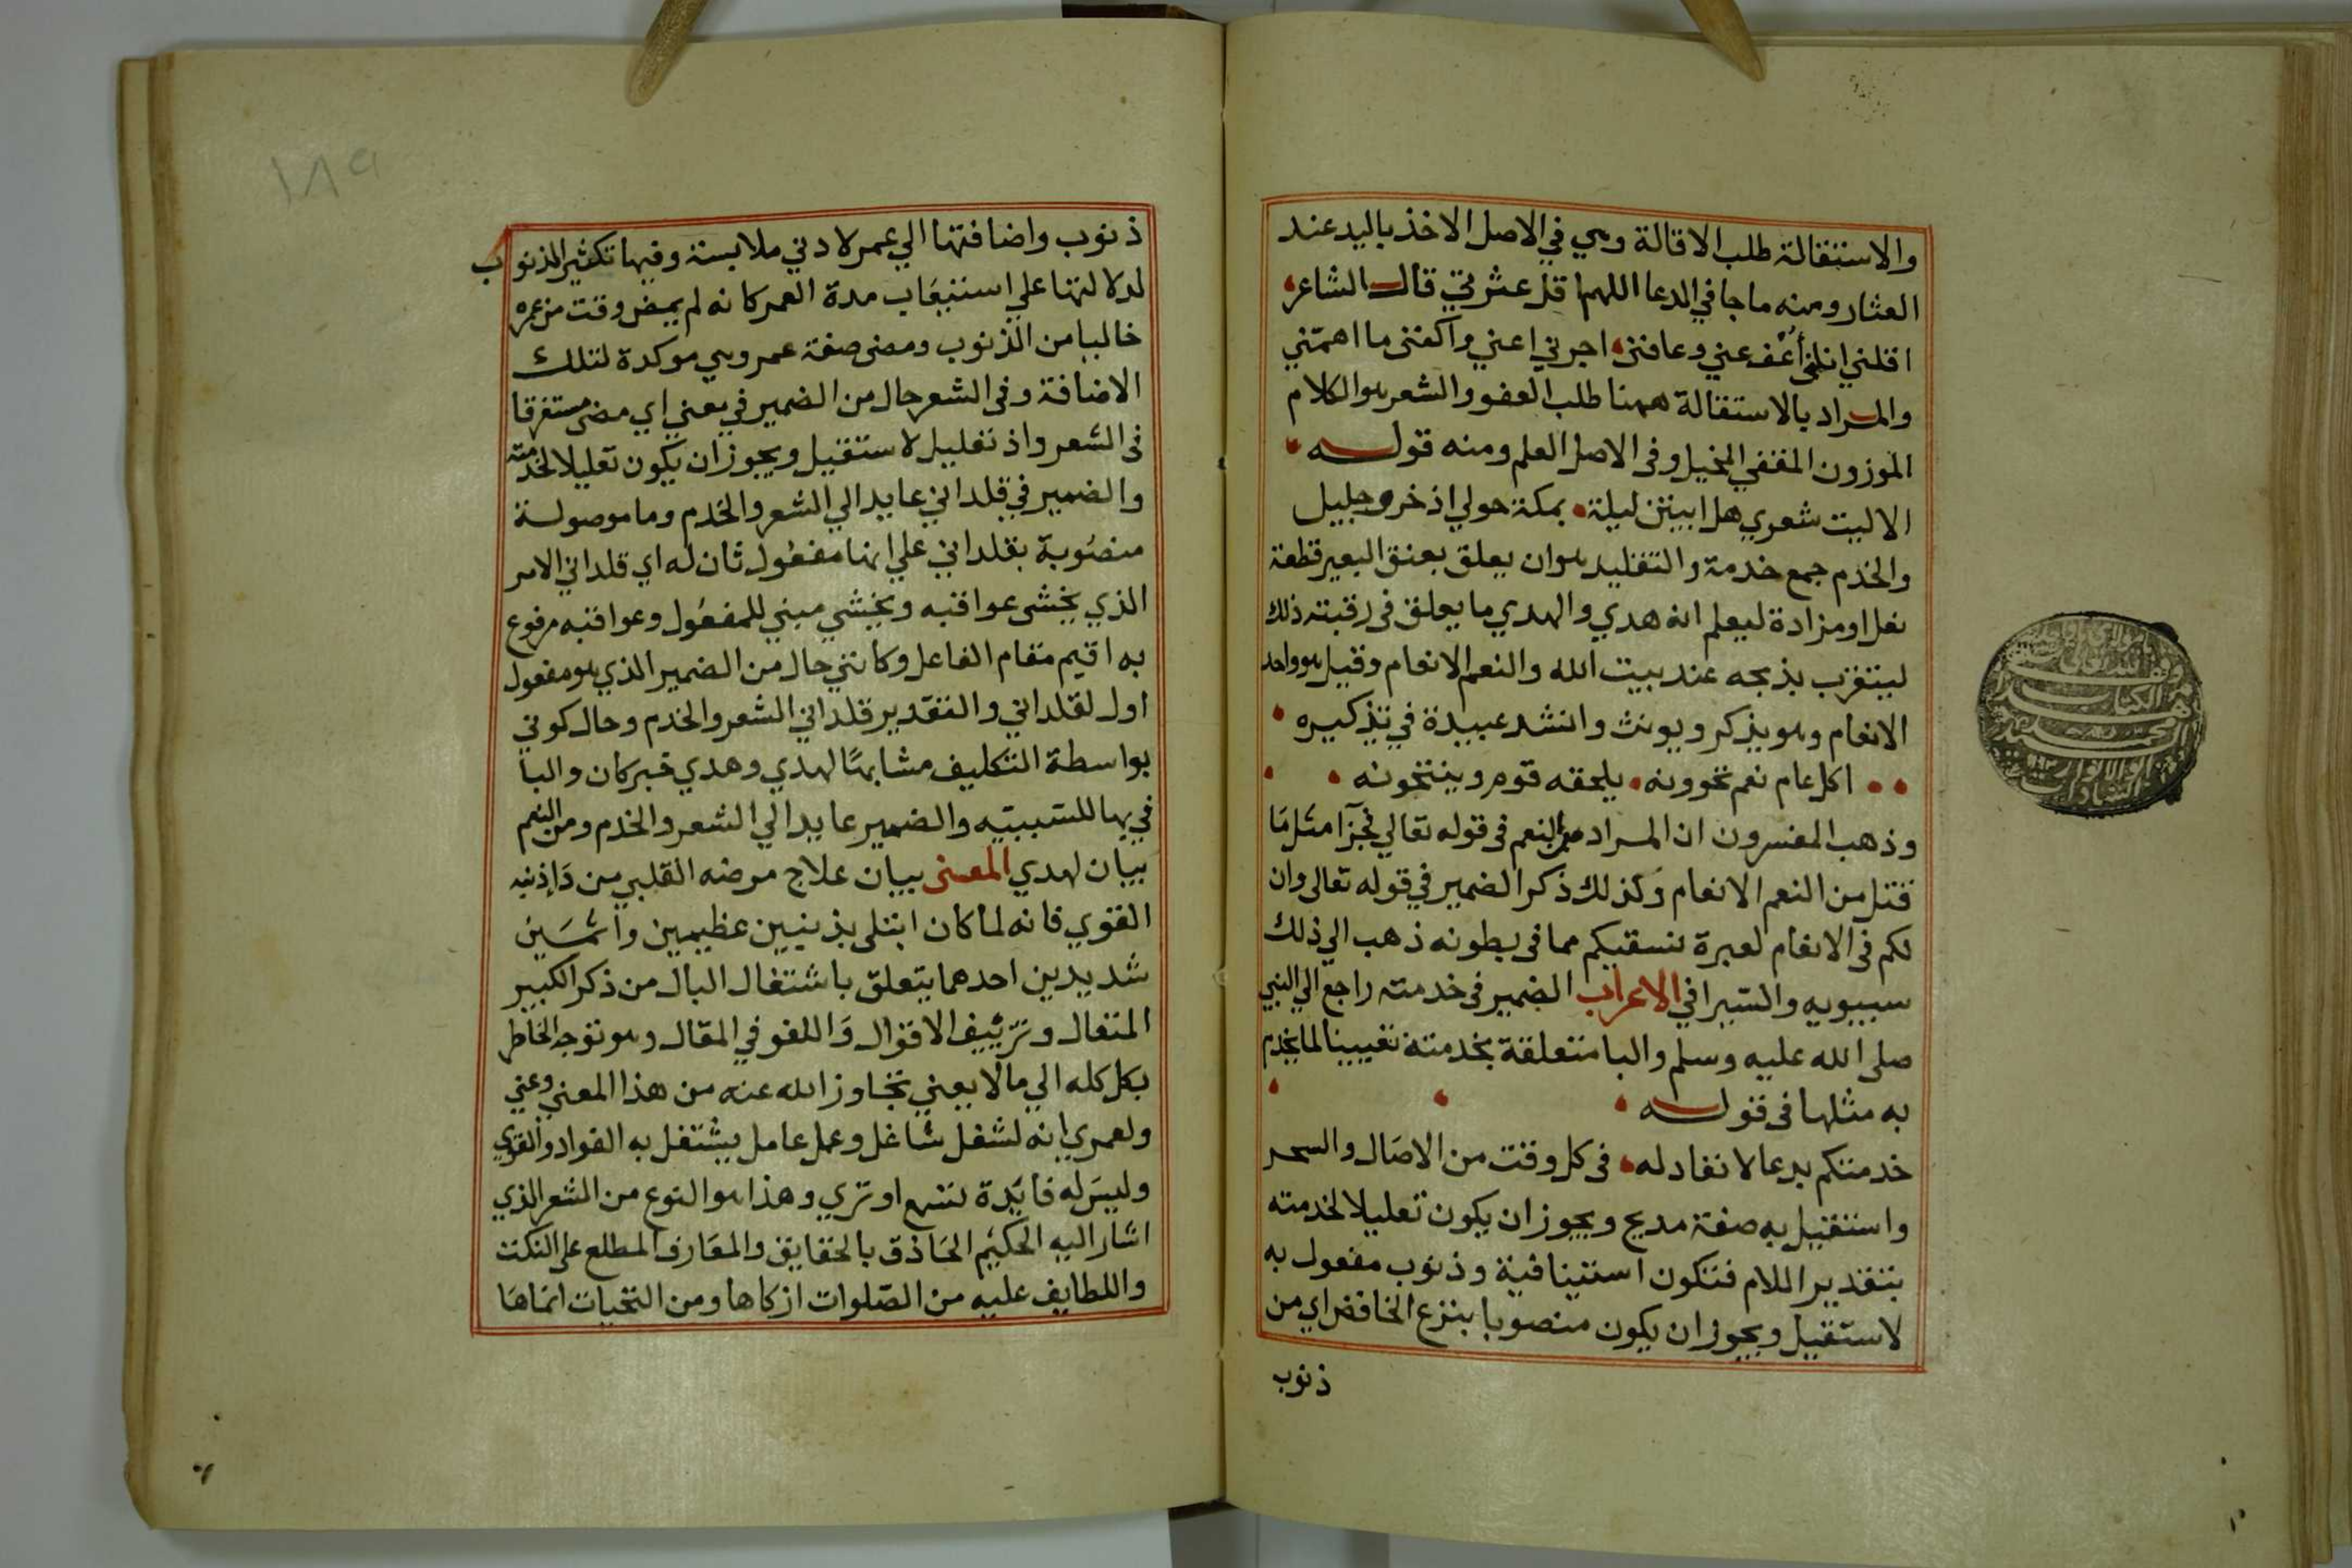 والاستقالة طلب الاقالة وهي في الاصل الاخذ باليد عند
العثار ومنه ما جا في الدعا اللهم اقل عثرتي قال الشاعر
اقلني انلني أعف عني وعافني اجرني اعني واكفني ما اهمّني
والمراد بالاستقالة ههنا طلب العفو والشعر هو الكلام
الموزون المقفي المخيل وفى الاصل العلم ومنه قوله
الا ليت شعري هل ابيتن ليلة بمكة حولي اذخر وجليل
والخدم جمع خدمة والتقليد هو ان يعلق بعنق البعير قطعة
نعل او مزادة ليعلم انه هدي والهدي ما يعلق فى رقبته ذلك
ليتقرب بذبحه عند بيت الله والنعم الانعام وقيل هو واحد
الانعام وهو يذكر ويونث وانشد عبيدة في تذكيره
اكل عام نعم تحوونه يلحقه قوم وينتخونه
وذهب المفسرون ان المراد من النعم فى قوله تعالي فجزآ مثل مَا
قتل من النعم الانعام وكذلك ذكر الضمير في قوله تعالى وان
لكم فى الانعام لعبرة نسقيكم مما فى بطونه ذهب الي ذلك
سيبويه والسّيرافي الاعراب الضمير فى خدمته راجع الي النبي
صلى الله عليه وسلم والبا متعلقة بخدمته تعيينا لما يخدم
به مثلها فى قوله
خدمتكم بدعا لا نفاد له فى كل وقت من الاصَال والسحر
واستقيل به صفة مديح ويجوز ان يكون تعليلا لخدمته
بتقدير اللام فتكون استينافية وذنوب مفعول به
لاستقيل ويجوز ان يكون منصوبا بنزع الخافض اي من
ذنوب
١٨٩
ذنوب واضافتها الي عمر لادني ملابسة وفيها تكثير الذنوب
لدلالتها علي استيعَاب مدة العمر كانه لم يمض وقت من عمره
خاليا من الذنوب ومضى صفة عمر وهي موكدة لتلك
الاضافة وفى الشعر حال من الضمير في يعني اي مضى مستغرقا
فى الشعر واذ تعليل لاستقيل ويجوز ان يكون تعليلا لخدمته
والضمير في قلداني عايد الي الشعر والخدم وما موصولة
منصُوبة بقلداني علي انها مفعُول ثان له اي قلداني الامر
الذي يخشى عواقبه ويخشي مبني للمفعُول وعواقبه مرفوع
به اقيم مقام الفاعل وكانني حال من الضمير الذي هو مفعول
اول لقلداني والتقدير قلداني الشعر والخدم وحال كوني
بواسطة التكليف مشابهًا لهدي وهدي خبر كان والبا
في بهما للسّببيّه والضمير عايد الي الشعر والخدم ومن النعم
بيان لهدي المعنى بيان علاج مرضه القلبي من دَاإذنبه
القوي فانه لما كان ابتلى بذنبين عظيمين واثمَين
شديدين احدهما يتعلق باشتغال البال من ذكر الكبير
المتعال وتزئييف الاقوال وَاللغو في المقال وهو توجه الخاطر
بكل كله الي مالا يعني تجاوز الله عنه من هذا المعني وعني
ولعمري انه لشغل شاغل وعمل عامل يشتغل به الفواد والقوي
وليس له فايدة تسمع او تري وهذا هو النوع من الشعر الذي
اشار اليه الحكيم الحَاذق بالحقايق والمعَارف المطلع على النكت
واللطايف عليه من الصّلوات ازكاها ومن التحيات انمَاهَا